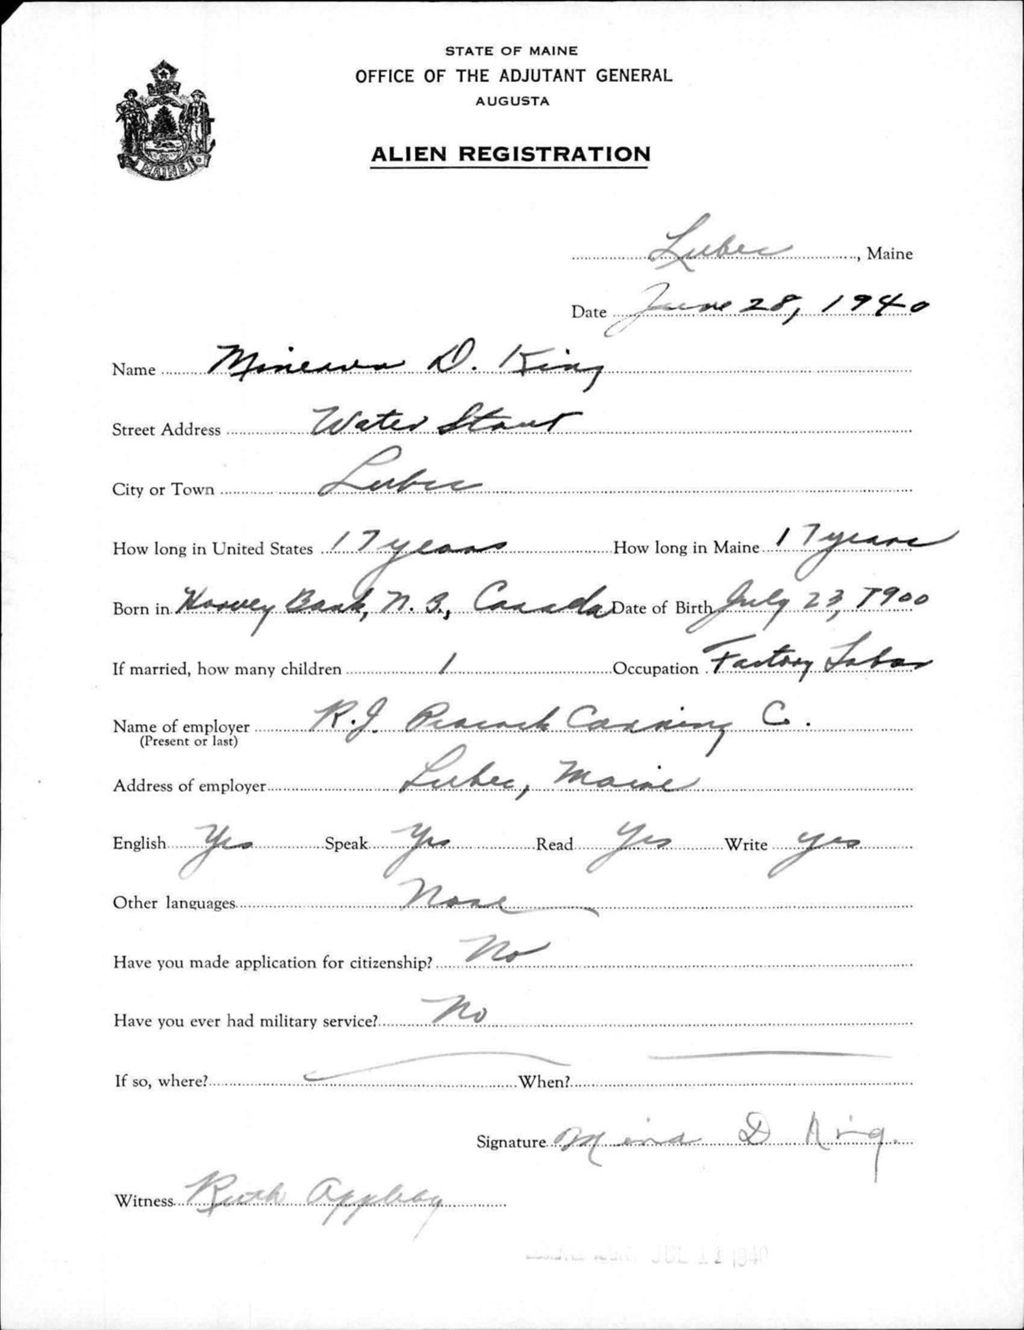 STATE OF MAINE
OFFICE OF THE ADJUTANT GENERAL
AUGUSTA
ALIEN REGISTRATION
MAINE
Lubec, Maine
Date June 28, 1940
Name Minerva D. King
Street Address Water Street
City or Town Lubec
How long in United States 17 years How long in Maine 17 years
Born in Harvey Bank, N. B., Canada Date of Birth July 23, 1900
If married, how many children 1 Occupation Factory Labor
Name of employer R.J. Peacock Canning C.
(Present or last)
Address of employer Lubec, Maine
English Yes Speak Yes Read Yes Write yes
Other languages None
Have you made application for citizenship? No
Have you ever had military service? No
If so, where? When?
Signature Mina D King
Witness Ruth Appleby
JUL 11 1940